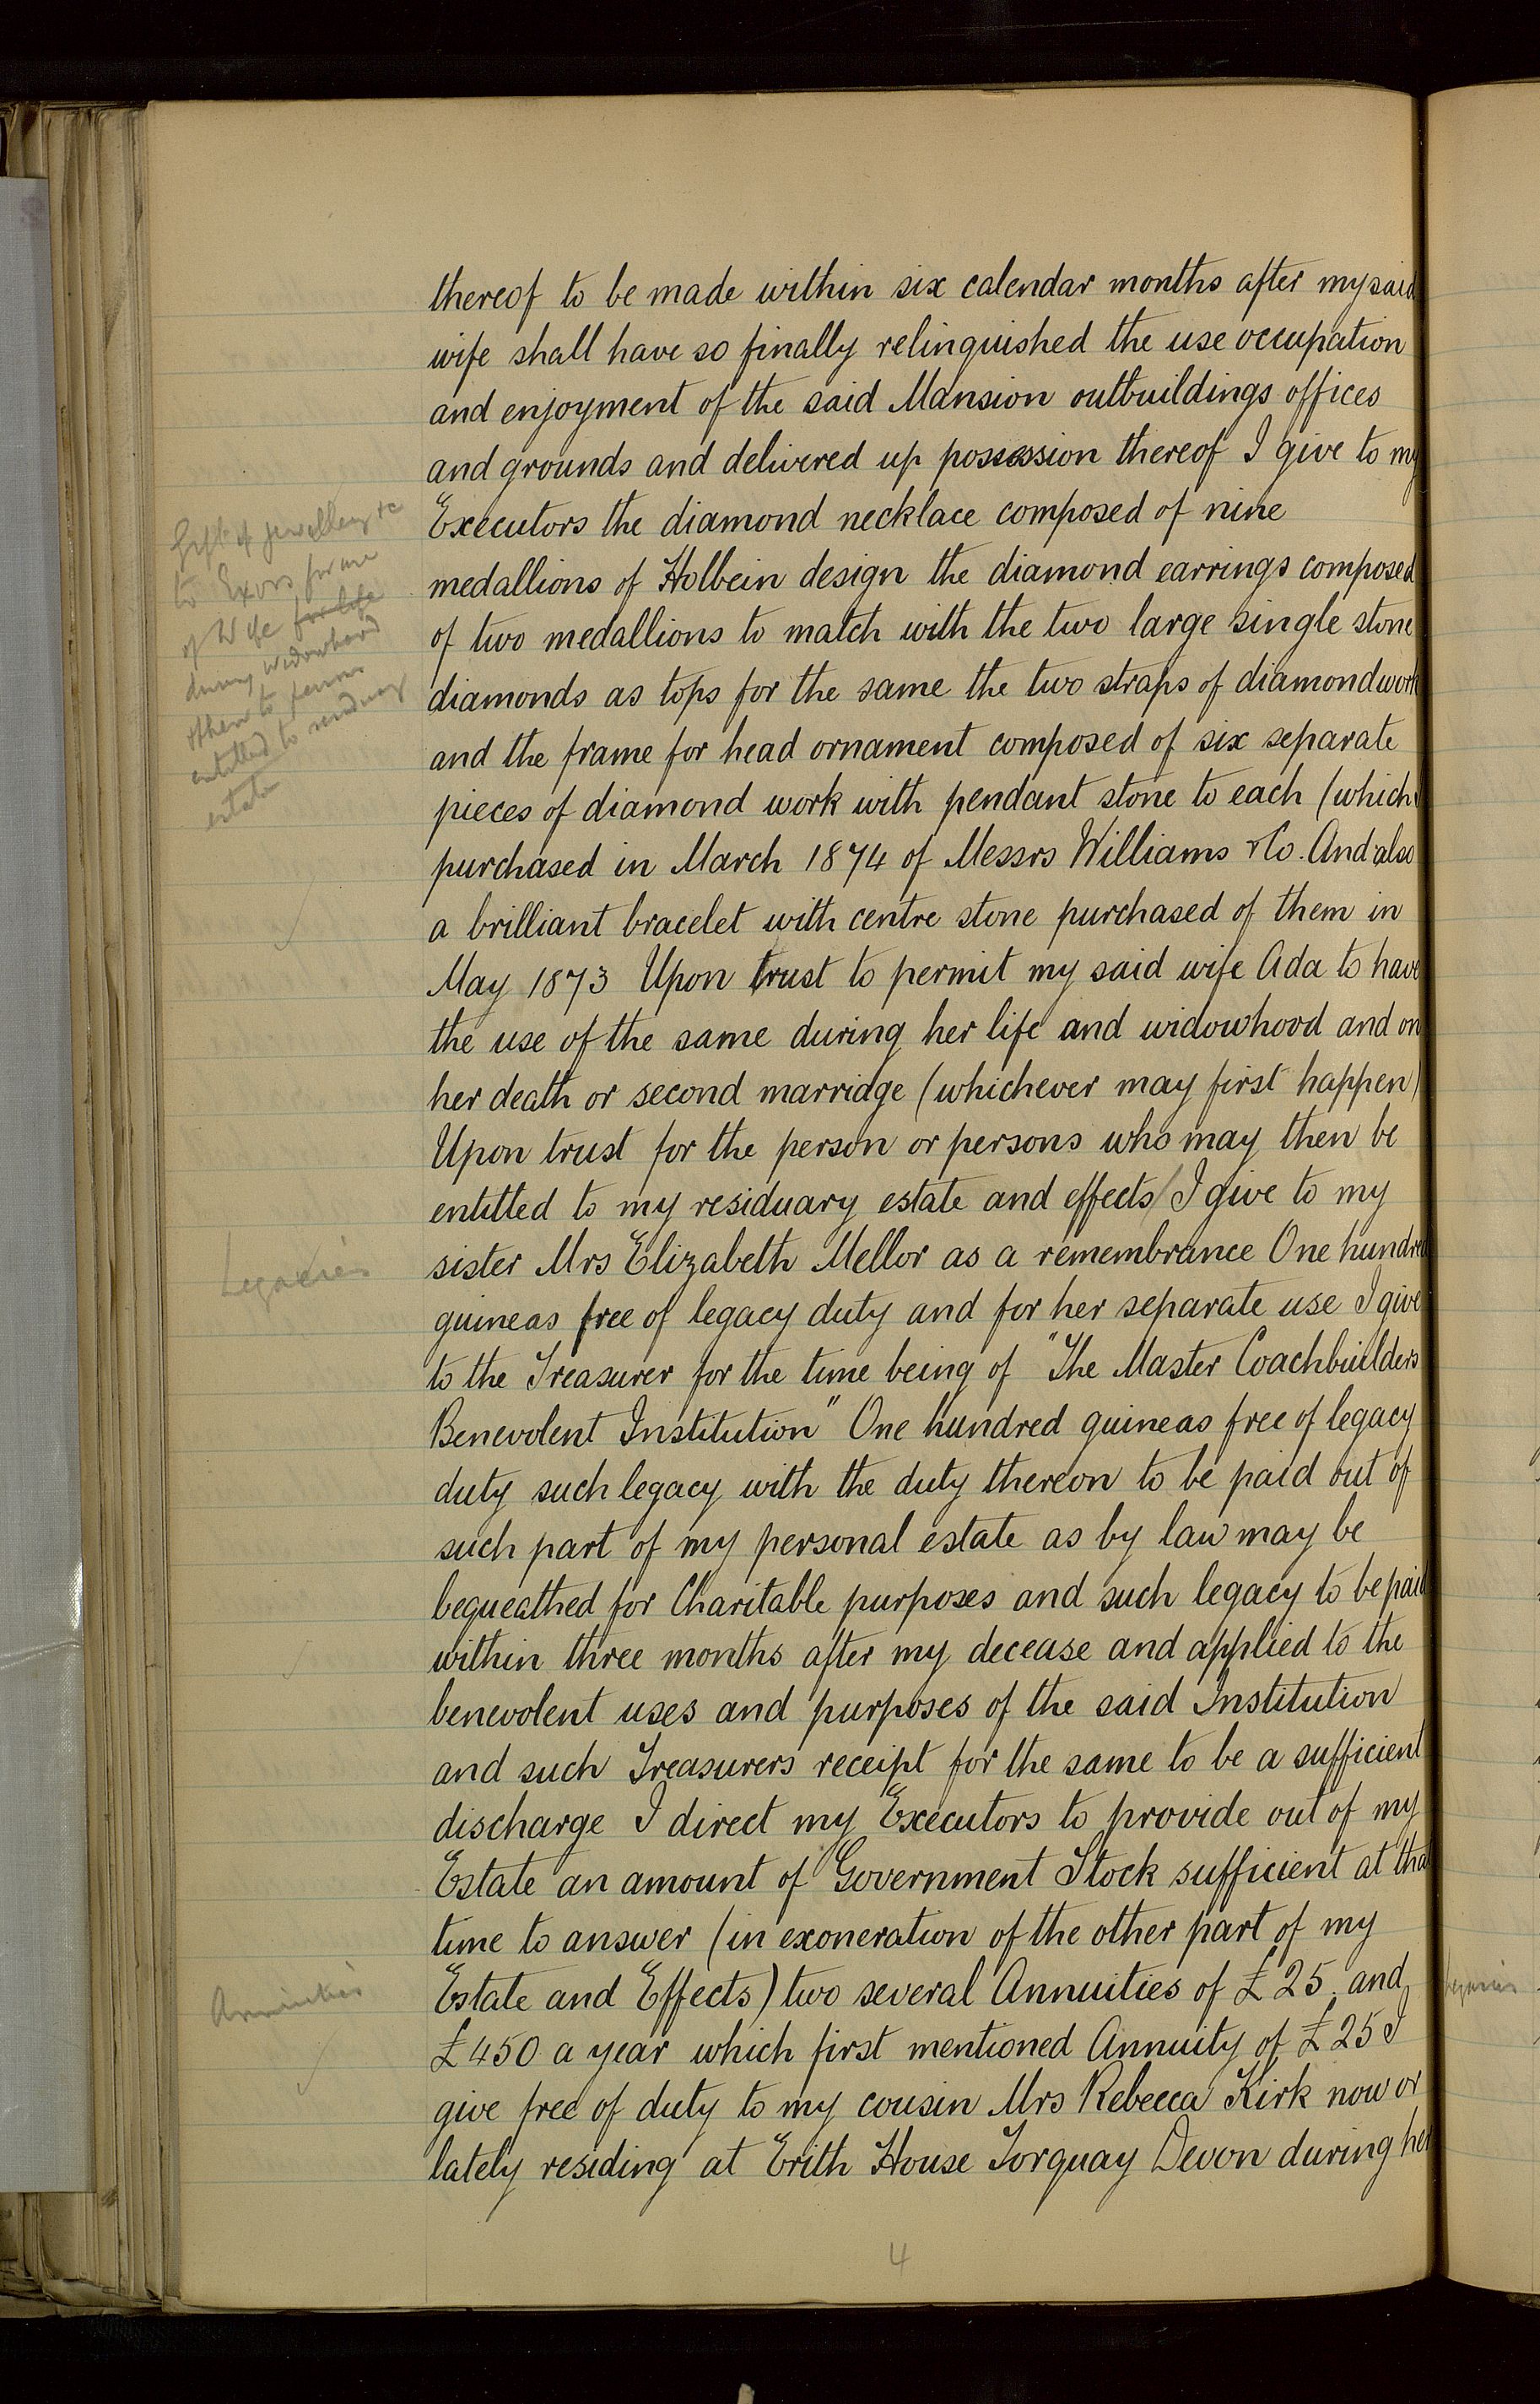 thereof to be made within six calendar months after my said
wife shall have so finally relinquished the use occupation
and enjoyment of the said Mansion outbuildings offices
and grounds and delivered up possession thereof I give to my
Executors the diamond necklace composed of nine
medallions of Holbein design the diamond earrings composed
of two medallions to match with the two large single stone
diamonds as tops for the same the two straps of diamond work
and the frame for head ornament composed of six separate
pieces of diamond work with pendant stone to each (which
purchased in March 1874 of Messrs Williams & Co. And also
a brilliant bracelet with centre stone purchased of them in
May 1873 Upon trust to permit my said wife Ada to have
the use of the same during her life and widowhood and on
her death or second marriage (whichever may first happen)
Upon trust for the person or persons who may then be
entitled to my residuary estate and effects / I give to my
sister Mrs Elizabeth Mellor as a remembrance One hundred
guineas free of legacy duty and for her separate use I give
to the Treasurer for the time being of "The Master Coachbuilders
Benevolent Institution" One hundred guineas free of legacy
duty such legacy with the duty thereon to be paid out of
such part of my personal estate as by law may be
bequeathed for Charitable purposes and such legacy to be paid
within three months after my decease and applied to the
benevolent uses and purposes of the said Institution
and such Treasurers receipt for the same to be a sufficient
discharge I direct my Executors to provide out of my
Estate an amount of Government Stock sufficient at that
time to answer (in exoneration of the other part of my
Estate and Effects) two several Annuities of £25 and
£450 a year which first mentioned Annuity of £25 I
give free of duty to my cousin Mrs Rebecca Kirk now or
lately residing at Erith House Torquay Devon during her
4
Gift of jewellery &c
to Exors for use
of Wife for life
during widowhood
then to persons
entitled to residuary
estate
Legacies
Annuities